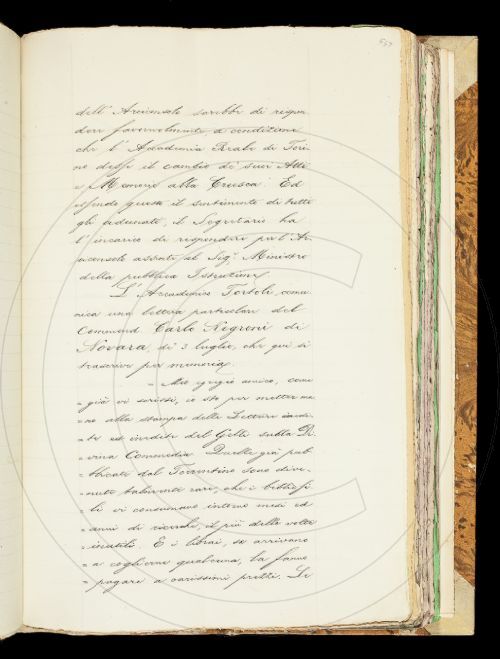 637
dell' Arciconsolo sarebbe di rispon
dere favorevolmente, a condizione
che l' Accademia Reale di Tori-
no desse il cambio de' suoi Atti
e Memorie alla Crusca. Ed
essendo questo il sentimento di tutti
gli adunati, il Segretario ha
l' incarico di rispondere per l' Ar-
ciconsolo al Sig.r Ministro
della pubblica Istruzione.
L' Accademico Tortoli, comu
nica una lettera particolare del
Commend. Carlo Negroni di
Novara, de' 3 luglio, che qui si
trascrive per memoria.
= Mio egregio amico, come
= già vi scrissi, io sto per metter ma
= no alla stampa delle Letture edi-
= te ed inedite del Gelli sulla Di-
= vina Commedia. Quelle già pub
= blicate dal Torrentino sono dive-
= nute talmente rare, che i bibliofi-
= li vi consumano intorno mesi ed
= anni di ricerche, il più delle volte
= inutili. E i librai, se arrivano
= a coglierne qualcuna, la fanno
= pagare a carissimi prezzi. Le